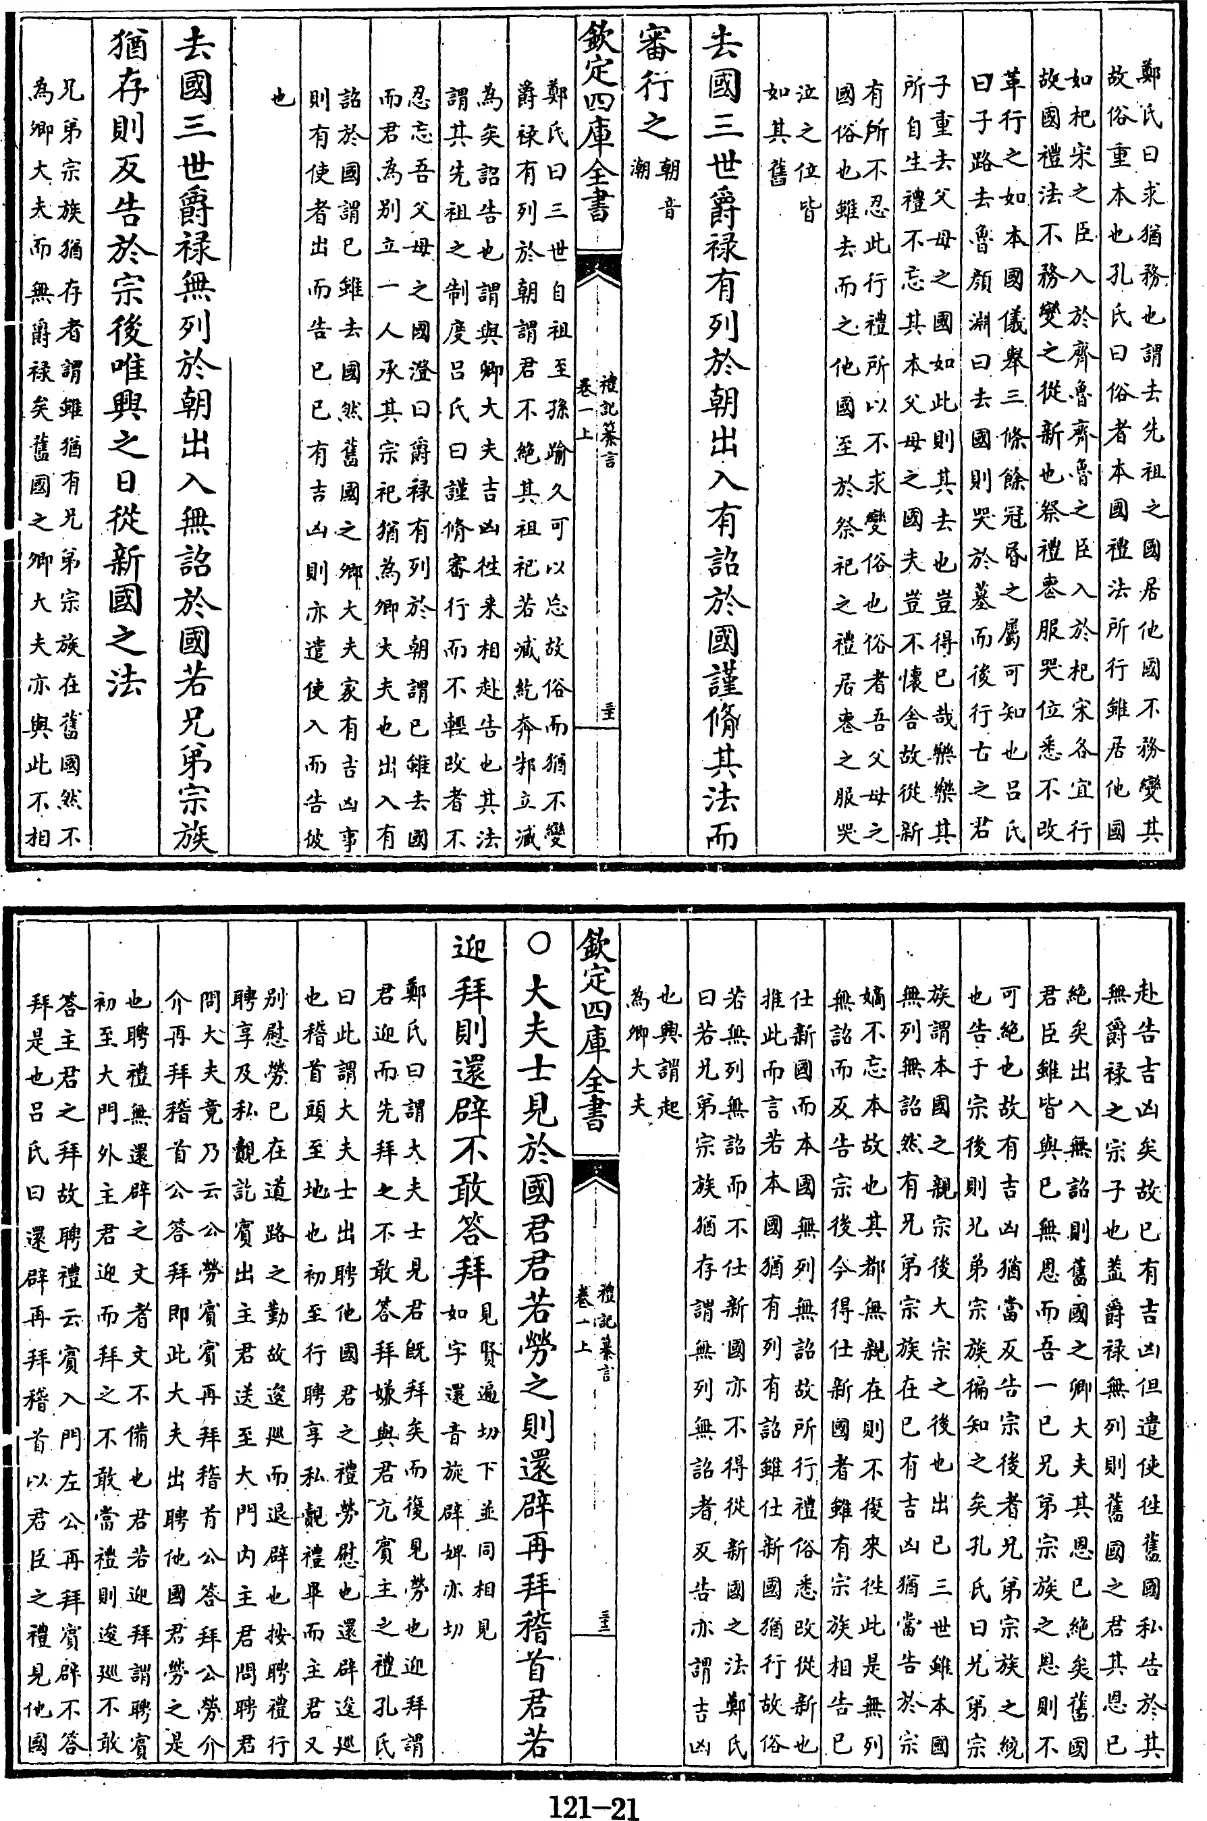 鄭氏曰求猶務也謂去先祖之國居他國不務變其
故俗重本也孔氏曰俗者本國禮法所行雖居他國
如杞宋之臣入於齊魯齊魯之臣入於杞宋各宜行
故國禮法不務變之從新也祭禮喪服哭位悉不改
革行之如本國儀舉三條餘冠昏之屬可知也呂氏
曰子路去魯顏淵曰去國則哭於墓而後行古之君
子重去父母之國如此則其去也豈得已哉樂樂其
所自生禮不忘其本父母之國夫豈不懷舍故從新
有所不忍此行禮所以不求變俗也俗者吾父母之
國俗也雖去而之他國至於祭祀之禮居喪之服哭
泣之位皆
如其舊
去國三世爵祿有列於朝出入有詔於國謹脩其法而
審行之朝音
潮
欽定四庫全書
禮記纂言
卷一上
三十
鄭氏曰三世自祖至孫踰久可以忘故俗而猶不變
爵祿有列於朝謂君不絕其祖祀若臧紇奔邾立臧
為矣詔告也謂與卿大夫吉凶往來相赴告也其法
謂其先祖之制度呂氏曰謹脩審行而不輕改者不
忍忘吾父母之國澄曰爵祿有列於朝謂已雖去國
而君為別立一人承其宗祀猶為卿大夫也出入有
詔於國謂已雖去國然舊國之卿大夫家有吉凶事
則有使者出而告已已有吉凶則亦遣使入而告彼
也
去國三世爵祿無列於朝出入無詔於國若兄弟宗族
猶存則反告於宗後唯興之日從新國之法
兄弟宗族猶存者謂雖猶有兄弟宗族在舊國然不
為卿大夫而無爵祿矣舊國之卿大夫亦與此不相
赴告吉凶矣故已有吉凶但遣使往舊國私告於其
無爵祿之宗子也蓋爵祿無列則舊國之君其恩已
絕矣出入無詔則舊國之卿大夫其恩已絕矣舊國
君臣雖皆與已無恩而吾一已兄弟宗族之恩則不
可絕也故有吉凶猶當反告宗後者兄弟宗族之統
也告于宗後則兄弟宗族徧知之矣孔氏曰兄弟宗
族謂本國之親宗後大宗之後也出已三世雖本國
無列無詔然有兄弟宗族在已有吉凶猶當告於宗
嫡不忘本故也其都無親在則不復來往此是無列
無詔而反告宗後今得仕新國者雖有宗族相告已
仕新國而本國無列無詔故所行禮俗悉改從新也
推此而言若本國猶有列有詔雖仕新國猶行故俗
若無列無詔而不仕新國亦不得從新國之法鄭氏
曰若兄弟宗族猶存謂無列無詔者反告亦謂吉凶
也興謂起
為卿大夫
欽定四庫全書
禮記纂言
卷一上
○大夫士見於國君君若勞之則還辟再拜稽首君若
迎拜則還辟不敢答拜見賢遍切下並同相見
如字還音旋辟婢亦切
鄭氏曰謂大夫士見君既拜矣而後見勞也迎拜謂
君迎而先拜之不敢答拜嫌與君亢賓主之禮孔氏
曰此謂大夫士出聘他國君之禮勞慰也還辟逡巡
也稽首頭至地也初至行聘享私覿禮畢而主君又
別慰勞已在道路之勤故逡巡而退辟也按聘禮行
聘享及私覿訖賓出主君送至大門內主君問聘君
問大夫竟乃云公勞賓賓再拜稽首公答拜公勞介
介再拜稽首公答拜即此大夫出聘他國君勞之是
也聘禮無還辟之文者文不備也君若迎拜謂聘賓
初至大門外主君迎而拜之不敢當禮則逡巡不敢
答主君之拜故聘禮云賓入門左公再拜賓辟不答
拜是也呂氏曰還辟再拜稽首以君臣之禮見他國
121-21